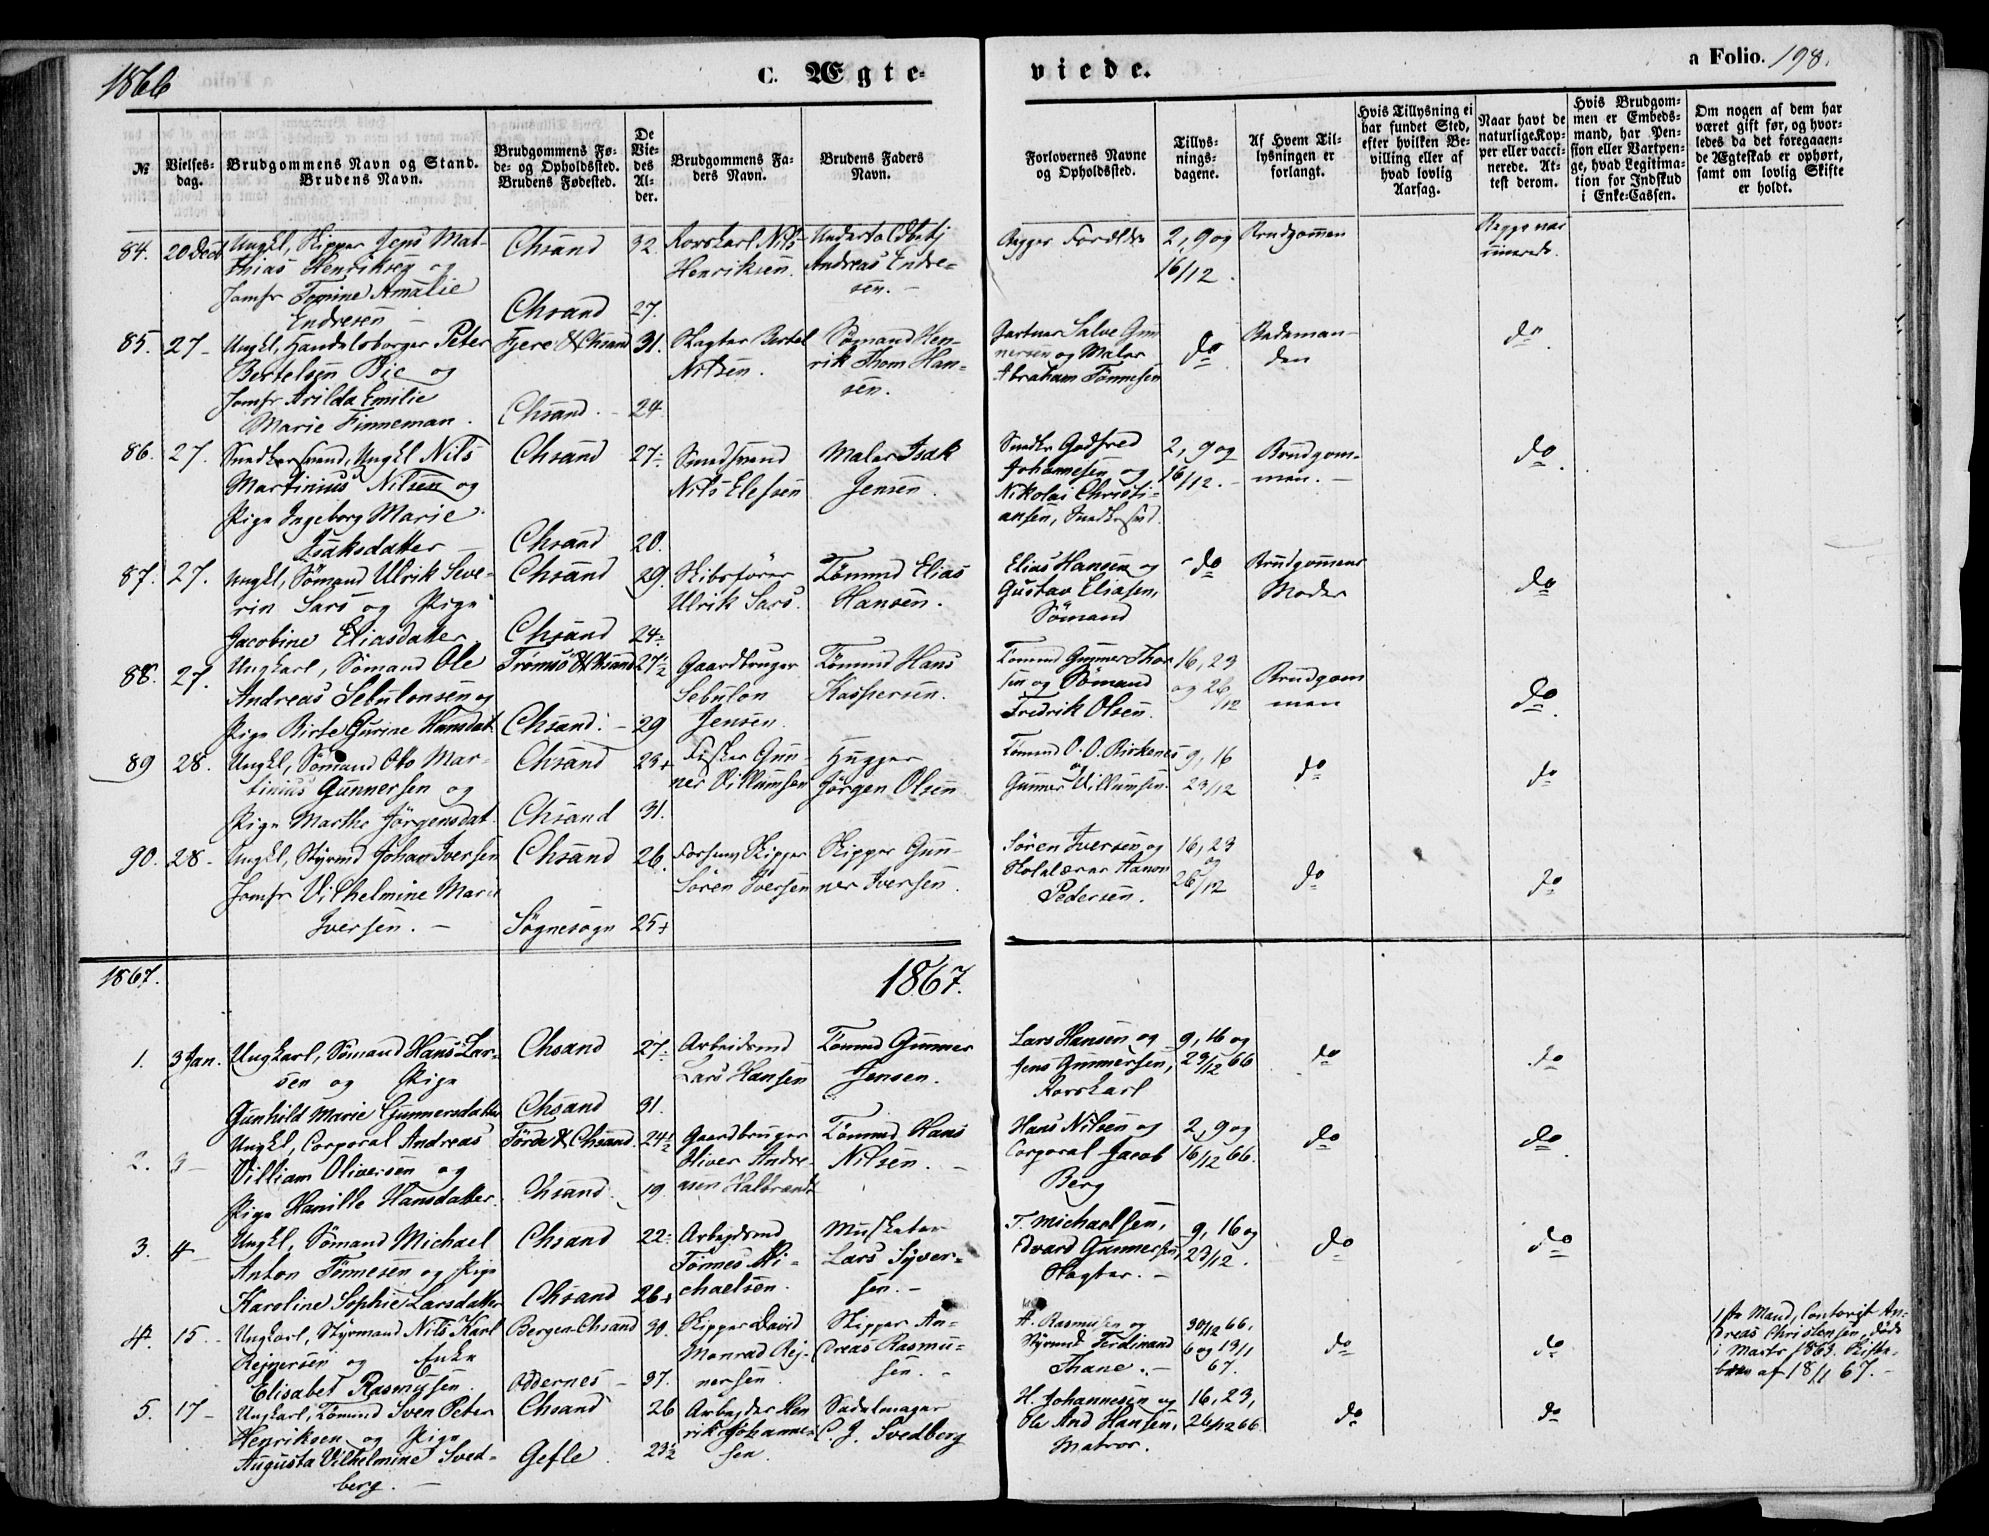 1866
C. Ægte-
viede.
a Folio. 198.
№
Vielses-
dag.
Brudgommens Navn og Stand.
Brudens Navn.
Brudgommens Fø-
de- og Opholdssted.
Brudens Fødested.
De
Vie-
des
Al-
der.
Brudgommens Fa-
ders Navn.
Brudens Faders
Navn.
Forlovernes Navne
og Opholdssted.
Tillys-
nings-
dagene.
Af Hvem Til-
lysningen er
forlangt.
Hvis Tillysning ei
har fundet Sted,
efter hvilken Be-
villing eller af
hvad lovlig
Aarsag.
Naar havt de
naturlige Kop-
per eller vacci-
nerede. At-
test derom.
Hvis Brudgom-
men er Embeds-
mand, har Pen-
sion eller Vartpen-
ge, hvad Legitima-
tion for Indskud
i Enke-Cassen.
Om nogen af dem har
været gift før, og hvor-
ledes da det foregaaen-
de Ægteskab er ophørt,
samt om lovlig Skifte
er holdt.
84. 20 Decb Ungkl, Skipper Jens Mat-
thias Henriksen og
Jomfr Tomine Amalie
Endresen
Chsand 32.
Chsand 27.
Henriksen.
Andreas Endre-
sen.
Begges Forældre
2, 9 og
16/12.
Brudgommen
85. 27 - Ungkl, Handelsborger Peter
Bertelsen Bie og
Jomfr Arilda Emilie
Marie Finneman.
Fjere & Chsand 31.
Chsand. - 24
Slagter Bertel
Nilsen.
Sømand Hen-
rik Thom Han-
sen.
Gartner Salve Gun
nersen og Maler
Abraham Tønnesen
do
do
86. 27. Snedkersvend, Ungkl Nils
Martinius Nilsen og
Pige Ingeborg Marie
Isaksdatter
Chsand 27-
Chsand 20.
Smedsvend
Nils Elefsen
Maler Isak
Jensen.
Snedkr Godfred
Johannesen og
Nikolai Christi-
ansen, Snedkersvd.
2, 9 og
16/12. -
Brudgom-
men. -
do.
87. 27. Ungkl, Sømand Ulrik Seve-
rin Sars og Pige
Jacobine Eliasdatter
Chsand 29.
Chsand 24-
Skibsfører
Ulrik Sars.
Tømmd Elias
Hansen.
Elias Hansen og
Gustav Eliasen,
Sömand
- do
Brudgommens
Moder
do
88. 27. Ungkarl, Sømand Ole
Andreas Sebulonsen og
Pige Birte Gurine Hansdat.
Tromsö & Chsand 27½
Chsand. - 29
Gaardbruger
Sebulon
Jensen.
Tömmd Hans
Kaspersen.
Tömmd Gunner Thor
sen og Sømand
Fredrik Olsen.
16, 23
og 26/12
Brudgom
men
do.
89 28. Ungkl, Sømand Otto Mar-
tinius Gunnersen og
Pige Marthe Jörgensdat.
Chsand 23+
Chsand 31.
Fisker Gun-
ner Villumsen
Hugger
Jörgen Olsen
Tömmd O. O. Birkenes
og
Gunner Villumsen.
9, 16
23/12
do
do
90. 28 - Ungkl, Styrmd Johan Iversen
Jomfr Vilhelmine Marie
Iversen. -
Chsand 26.
Søgnesogn 25+
Skipper
Sören Iversen
Skipper Gun-
ner Iversen.
Søren Iversen og
Skolelærer Aanon
Pedersen.
16, 23
og
26/12
do
do
1867.
1867.
1. 3 Jan. Ungkarl, Sømand Hans Lar-
sen og Pige
Gunhild Marie Gunnersdatter
Chsand 27-
Chsand 31.
Arbeidsmd
Lars Hansen
Tömmd Gunner
Jensen.
Lars Hansen og
Jens Gunnersen,
Rorskarl
9, 16 og
23/12 66
do
do
2. 3 - Ungkl, Corporal Andreas
Villiam Oliversen og
Pige Hanille Hansdatter.
Førde & Chsand. 24½
Chsand. 19.
Gaardbruger
Oliver Andre-
asen
Tömmd Hans
Nilsen. -
Hans Nilsen og
Corporal Jacob
Berg
2, 9 og
16/12 66.
do
do.
3. 4 - Ungkl, Sømand Michael
Anton Tönnesen og Pige
Karoline Sophie Larsdatter
Chsand 22-
Chsand 26+
Arbeidsmd
Tönnes Mi-
chaelsen.
Musketer
Lars Syver-
sen. -
T. Michaelsen,
Edvard Gunnersen,
Slagter. -
9, 16 og
23/12.
do
do
4. 15. - Ungkarl, Styrmand Nils Karl
Rejnersen og Enke
Elisabet Rasmussen.
Bergen-Chsand 30.
Oddernes - 37.
Skipper David
Monrad Rej-
nersen.
Skipper An-
dreas Rasmu-
sen. -
A. Rasmusen og
Styrmd Ferdinand
Thane. -
30/12 66,
6 og 13/1
67.
do
do
1ste Mand, Contorist An-
dreas Christensen, døde
i Marts 1863. Skifte-
brev af 18/1 67. -
5. 17 - Ungkarl, Tømmd Sven Peter
Henriksen og Pige
Augusta Vilhelmine Sved-
berg. -
Chsand 26
Gefle. 23½
Arbejder Hen
rik Johanne-
sen.
Sadelmager
C. J. Svedberg
H. Johannesen og
Ole And Hansen,
Matros.
16, 23,
26/12 66
do
do